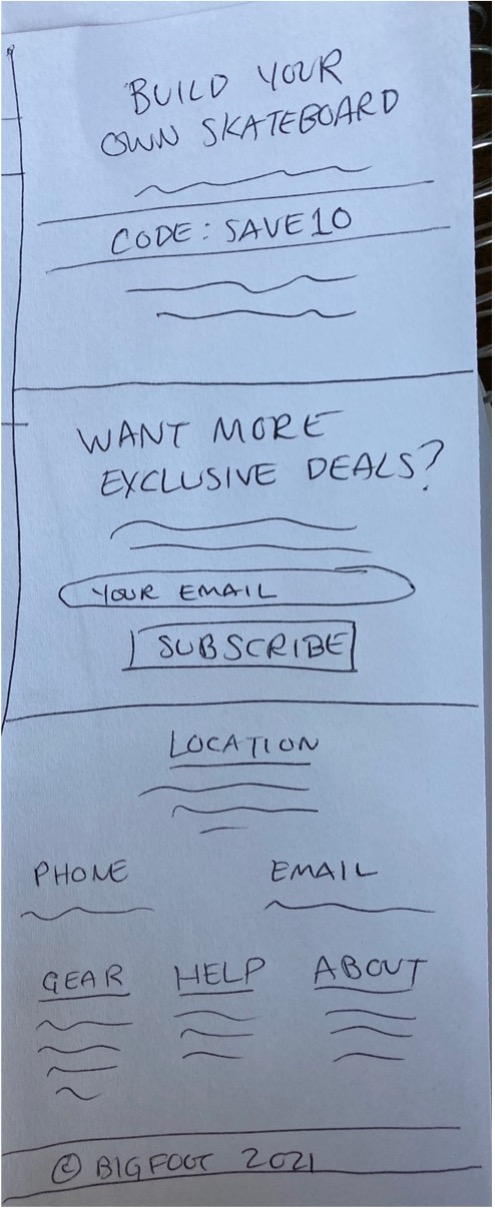 BUILD YOUR
OWN SKATEBOARD
CODE: SAVE10
WANT MORE
EXCLUSIVE DEALS?
YOUR EMAIL
SUBSCRIBE
LOCATION
PHONE EMAIL
GEAR HELP ABOUT
© BIGFOOT 2021